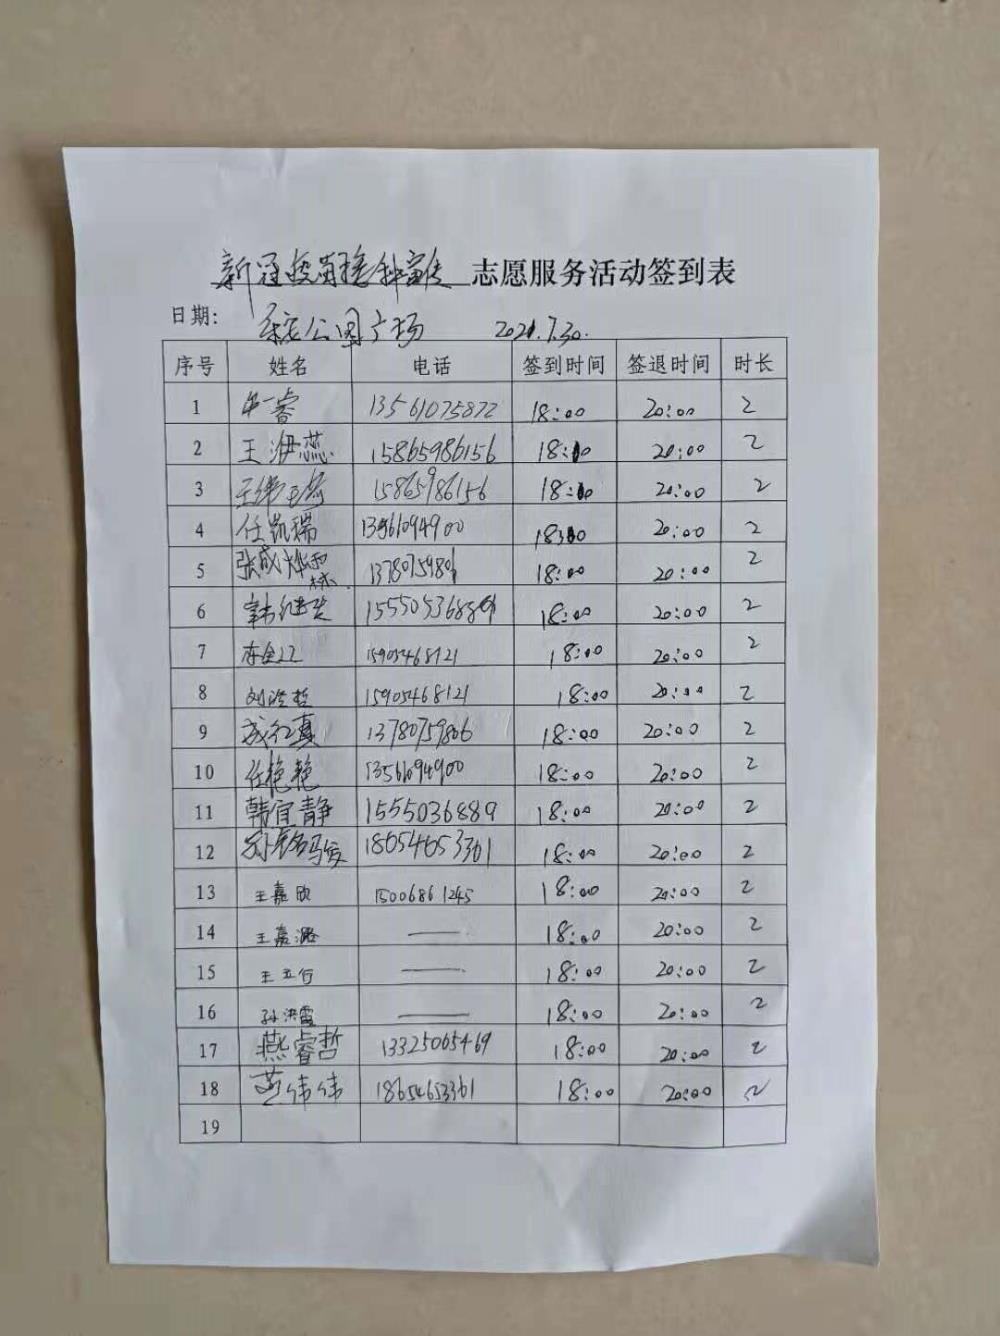 新冠疫苗接种宣传 志愿服务活动签到表
日期: 公园广场 2021.7.30.
序号 姓名 电话 签到时间 签退时间 时长
1 牟一睿 13561075872 18:00 20:00 2
2 王淠蕊 15865986156 18:10 20:00 2
3 15865986156 18:10 20:00 2
4 任凯瑞 13561094900 18:00 2
5 张成烨霖 13780759806 18:00 20:00 2
6 韩继 18:00 20:00 2
7 15905468121 18:00 20:00 2
8 刘浩哲 15905468121 18:00 20:00 2
9 成红真 13780759806 18:00 20:00 2
10 任艳艳 13561094900 18:00 20:00 2
11 韩宜静 1555036889 18:00 20:00 2
12 18654653361 18:00 20:00 2
13 王嘉欣 15006861245 18:00 20:00 2
14 王嘉潞 —— 18:00 20:00 2
15 王立行 —— 18:00 20:00 2
16 孙洪霞 —— 18:00 20:00 2
17 燕睿哲 13325065469 18:00 20:00 2
18 伟伟 18654653361 18:00 20:00 2
19